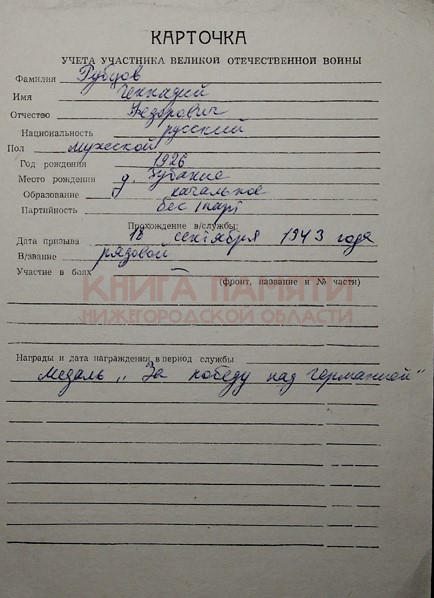 КАРТОЧКА
УЧЕТА УЧАСТНИКА ВЕЛИКОЙ ОТЕЧЕСТВЕННОЙ ВОЙНЫ
Фамилия Рубцов
Имя Геннадий
Отчество Федорович
Национальность русский
Пол мужской
Год рождения 1926
Место рождения д. Зубание
Образование начальное
Партийность бес парт
Прохождение в/службы:
Дата призыва 18 сентября 1943 года
В/звание рядовой
Участие в боях —
(фронт, название и № части)
КНИГА ПАМЯТИ
НИЖЕГОРОДСКОЙ ОБЛАСТИ
Награды и дата награждения в период службы
Медаль „За победу над Германией"